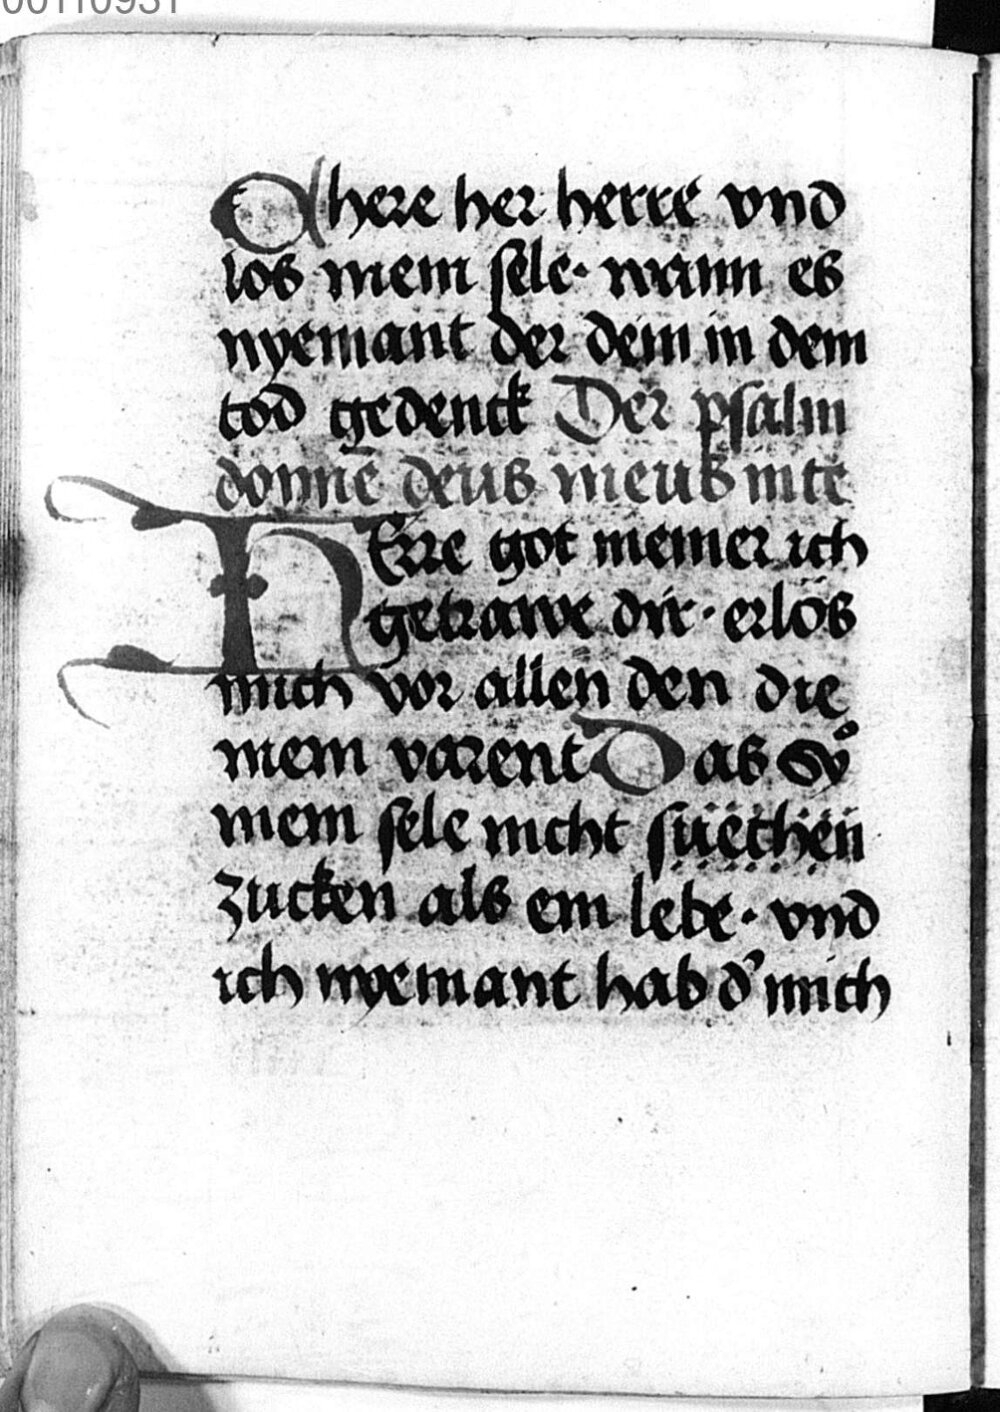 00110931
Chere her herre vnd
los mein sele· wann es
nyemant der dein in dem
tod gedenck Der psalm
domine deus meus in te
HErre got meiner ich
getrawe dir· erlös
mich vor allen den die
mein varent Das sy
mein sele nicht süechen
zucken als ein lebe· vnd
ich nyemant hab d' mich